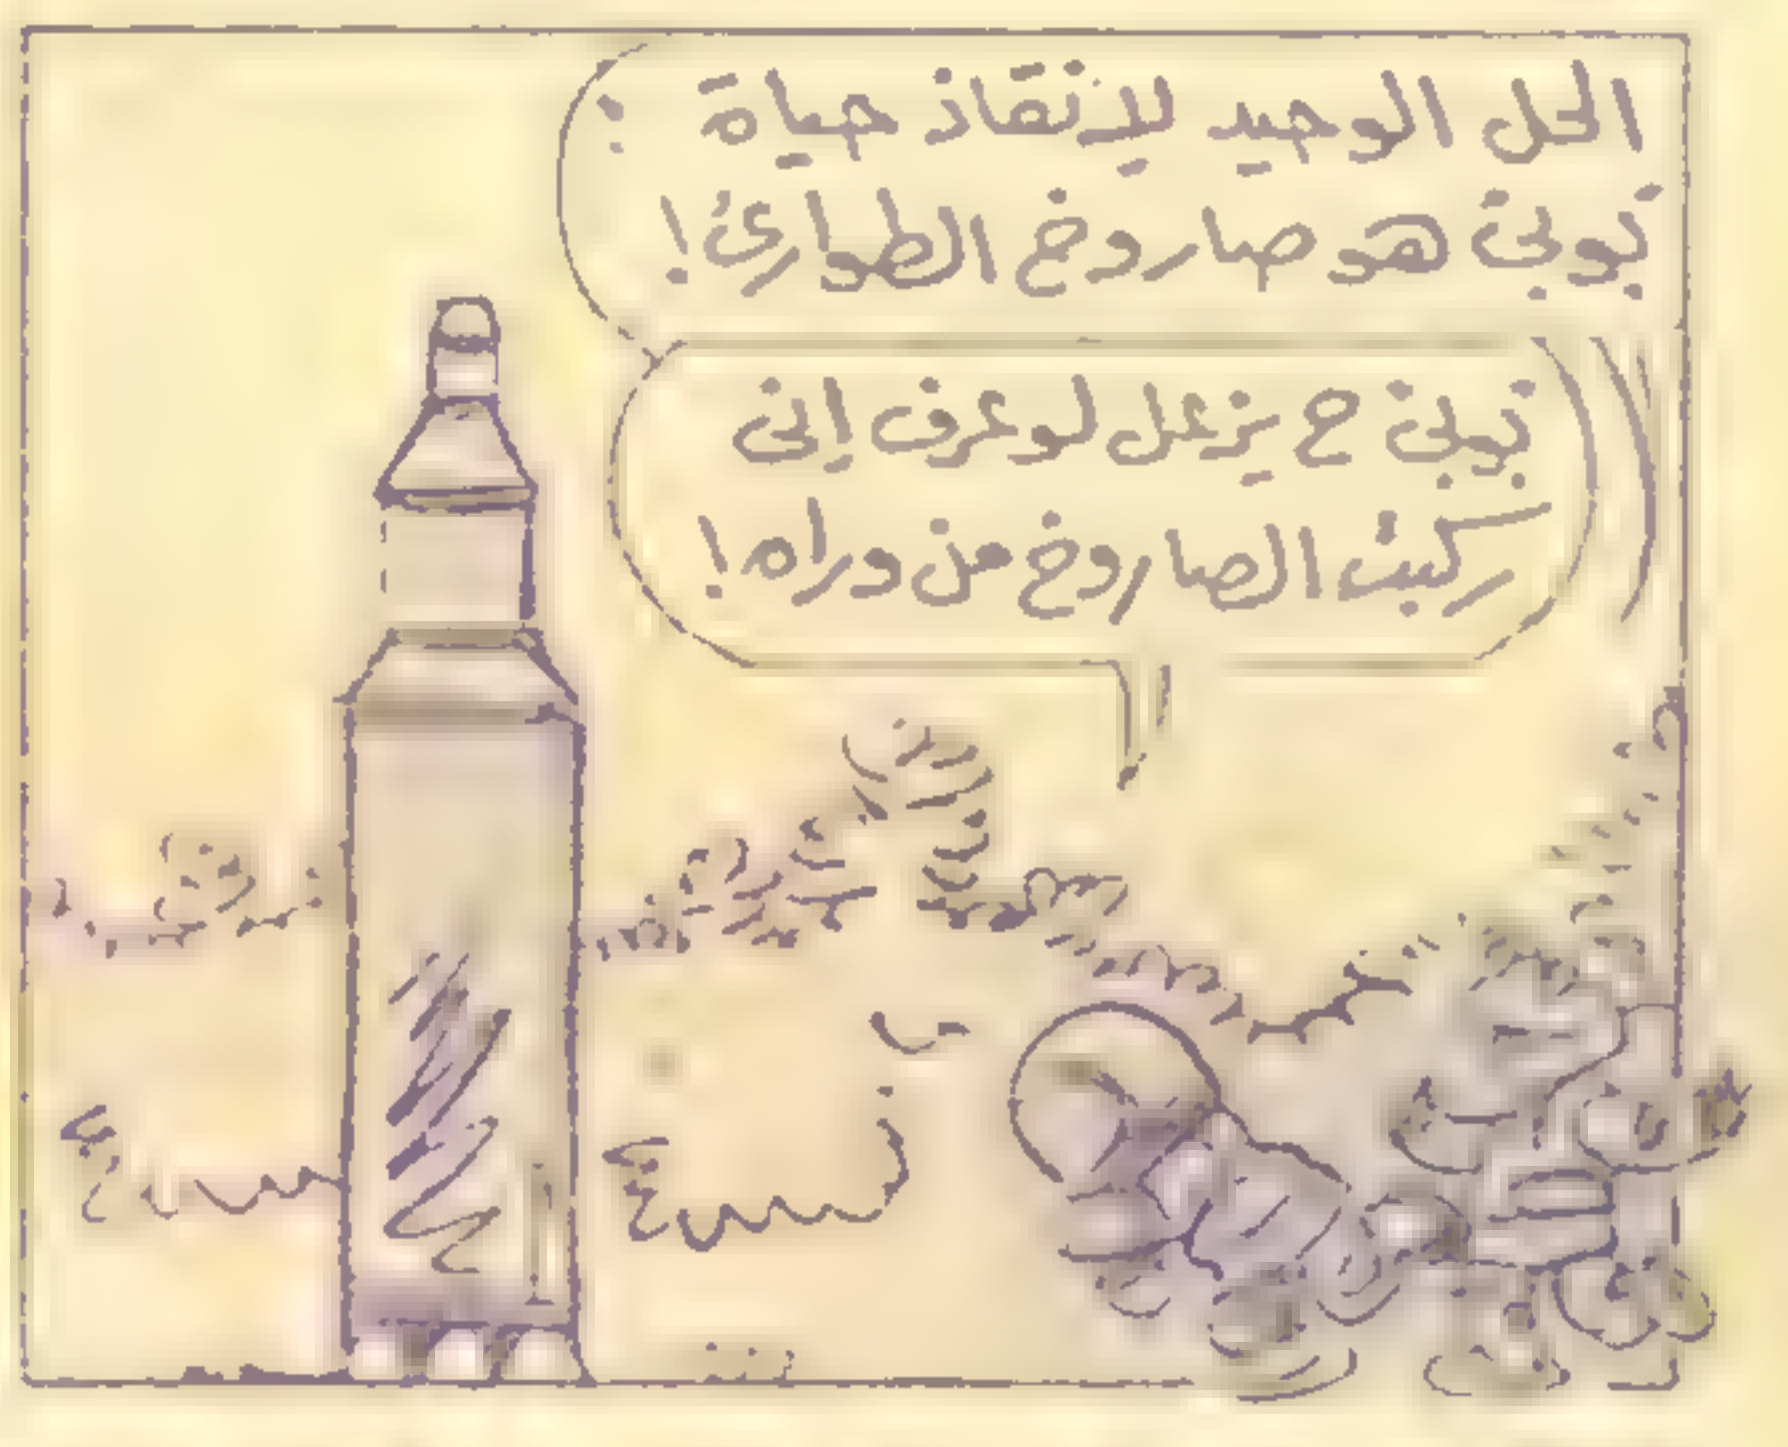 الحل الوحيد لإنقاذ حياة :
بوبى هو صاروخ الطوارئ!
بوبى ح يزعل لو عرف إنى
ركبت الصاروخ من وراه!